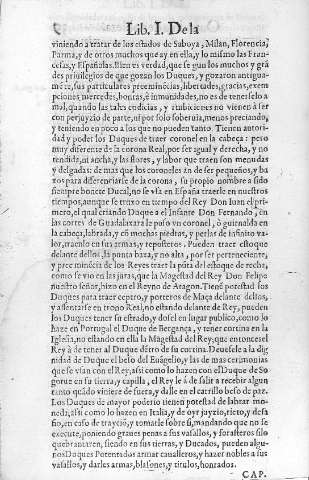 Lib. I. De la
viniendo a tratar de los estados de Saboya, Milan, Florencia,
Parma, y de otros muchos que ay en ella, y lo mismo las Fran-
cesas, y Españolas. Bien es verdad, que segun los muchos y grã
des priuilegios de que gozan los Duques, y gozaron antigua-
mẽte, sus particulares preeminẽcias, libertades, gracias, exem-
pciones, mercedes, honras, è inmunidades, no es de tenerselo a
mal, quando las tales codicias, y ambiciones no vienen à ser
con perjuyzio de parte, ni por solo soberuia, menos preciando,
y teniendo en poco a los que no pueden tanto. Tienen autori-
dad y poder los Duques de traer coronel en la cabeça: pero
muy diferente de la corona Real, por ser igual y derecha, y no
tendida, ni ancha, y las flores, y labor que traen son menudas
y delgadas: de mas que los coroneles an de ser pequeños, y ba
xos para diferenciarse de la corona, su propio nombre a sido
siempre bonete Ducal, no se vsa en España traerle en nuestros
tiempos, aunque se truxo en tiempo del Rey Don Iuan el pri-
mero, el qual criando Duque a el Infante Don Fernando, en
las cortes de Guadalaxara le puso vn coronel, ò guirnalda en
la cabeça, labrada, y cõ muchas piedras, y perlas de infinito va-
lor, traenlo en sus armas, y reposteros. Pueden traer estoque
delante dellos, la punta baxa, y no alta, por ser perteneciente,
y preeminẽcia de los Reyes traer la pũta del estoque derecha,
como se vio en las juras, que la Magestad del Rey Don Felipe
nuestro señor, hizo en el Reyno de Aragon. Tienẽ potestad los
Duques para traer ceptro, y porteros de Maça delante dellos,
y assentarse en trono Real, no estando delante de Rey, pueden
los Duques tener su estrado, y dosel en lugar publico, como lo
haze en Portugal el Duque de Bergança, y tener cortina en la
Iglesia, no estando en ella la Magestad del Rey, que entonces el
Rey à de tener al Duque dẽtro de su cortina. Deuesele a la dig
nidad de Duque el beso del Euãgelio, y las de mas ceremonias
que se vsan con el Rey, assi como lo hazen con el Duque de So
gorue en su tierra, y capilla, el Rey le à de salir a recebir algun
tanto quãdo viniere de fuera, y dalle en el carrillo beso de paz.
Los Duques de mayor poderio tienen potestad de labrar mo-
neda, assi como lo hazen en Italia, y de oyr jayzio, rieto, y desa
fio, en caso de trayciõ, y tomarle sobre si, mandando que no se
execute, poniendo graues penas a sus vasallos, y forasteros si lo
quebrantaren, siendo en sus tierras, y Ducados, pueden algu-
nos Duques Potentados armar caualleros, y hazer nobles a sus
vasallos, y darles armas, blasones, y titulos, honrados.
CAP.